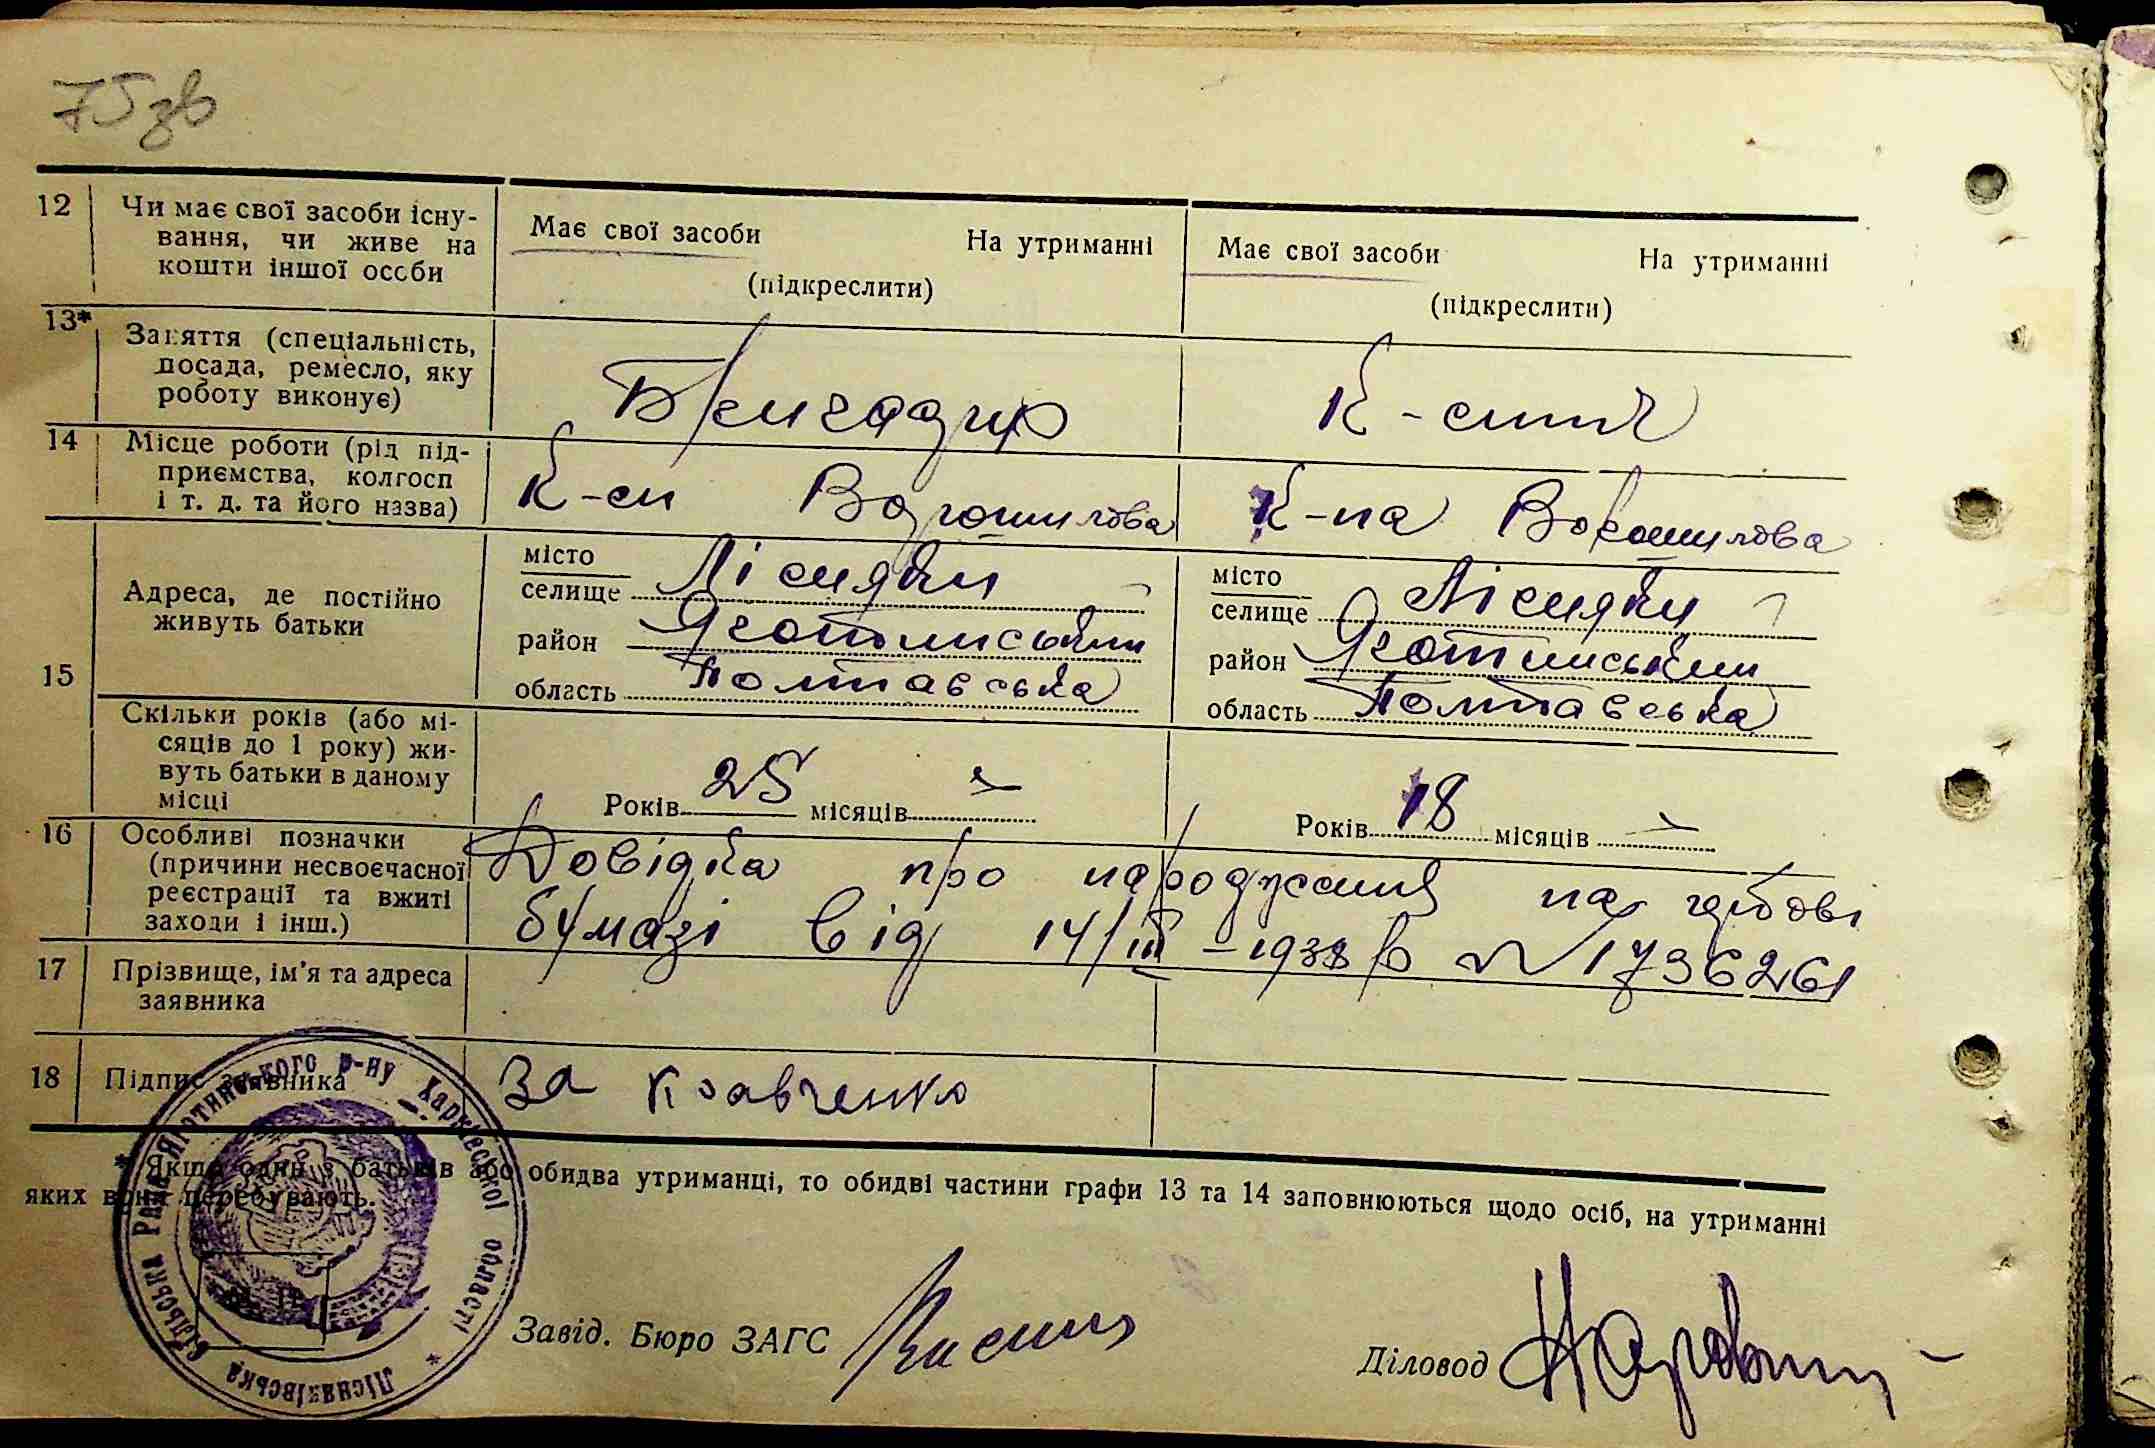 75зв
12 Чи має свої засоби існу-
вання, чи живе на
кошти іншої особи
Має свої засоби На утриманні
(підкреслити)
Має свої засоби На утриманні
(підкреслити)
13* Заняття (спеціальність,
посада, ремесло, яку
роботу виконує)
Бригадир
К-ник
14 Місце роботи (рід під-
приємства, колгосп
і т. д. та його назва)
К-п Ворошилова
К-па Ворошилова
15
Адреса, де постійно
живуть батьки
місто
селище Лісняки
район Яготинський
область Полтавська
місто
селище Лісняки
район Яготинський
область Полтавська
Скільки років (або мі-
сяців до 1 року) жи-
вуть батьки в даному
місці
Років 25 місяців –
Років 18 місяців –
16 Особливі позначки
(причини несвоєчасної
реєстрації та вжиті
заходи і інш.)
Довідка про народження на гербові
бумазі від 14/III – 1938 р № 1736261
17 Прізвище, ім'я та адреса
заявника
18 Підпис заявника
За Кравченко
* Якщо один з батьків або обидва утриманці, то обидві частини графи 13 та 14 заповнюються щодо осіб, на утриманні
яких вони перебувають.
Лісняківська сільська Рада Яготинського р-ну Харківської області
Завід. Бюро ЗАГС
Діловод